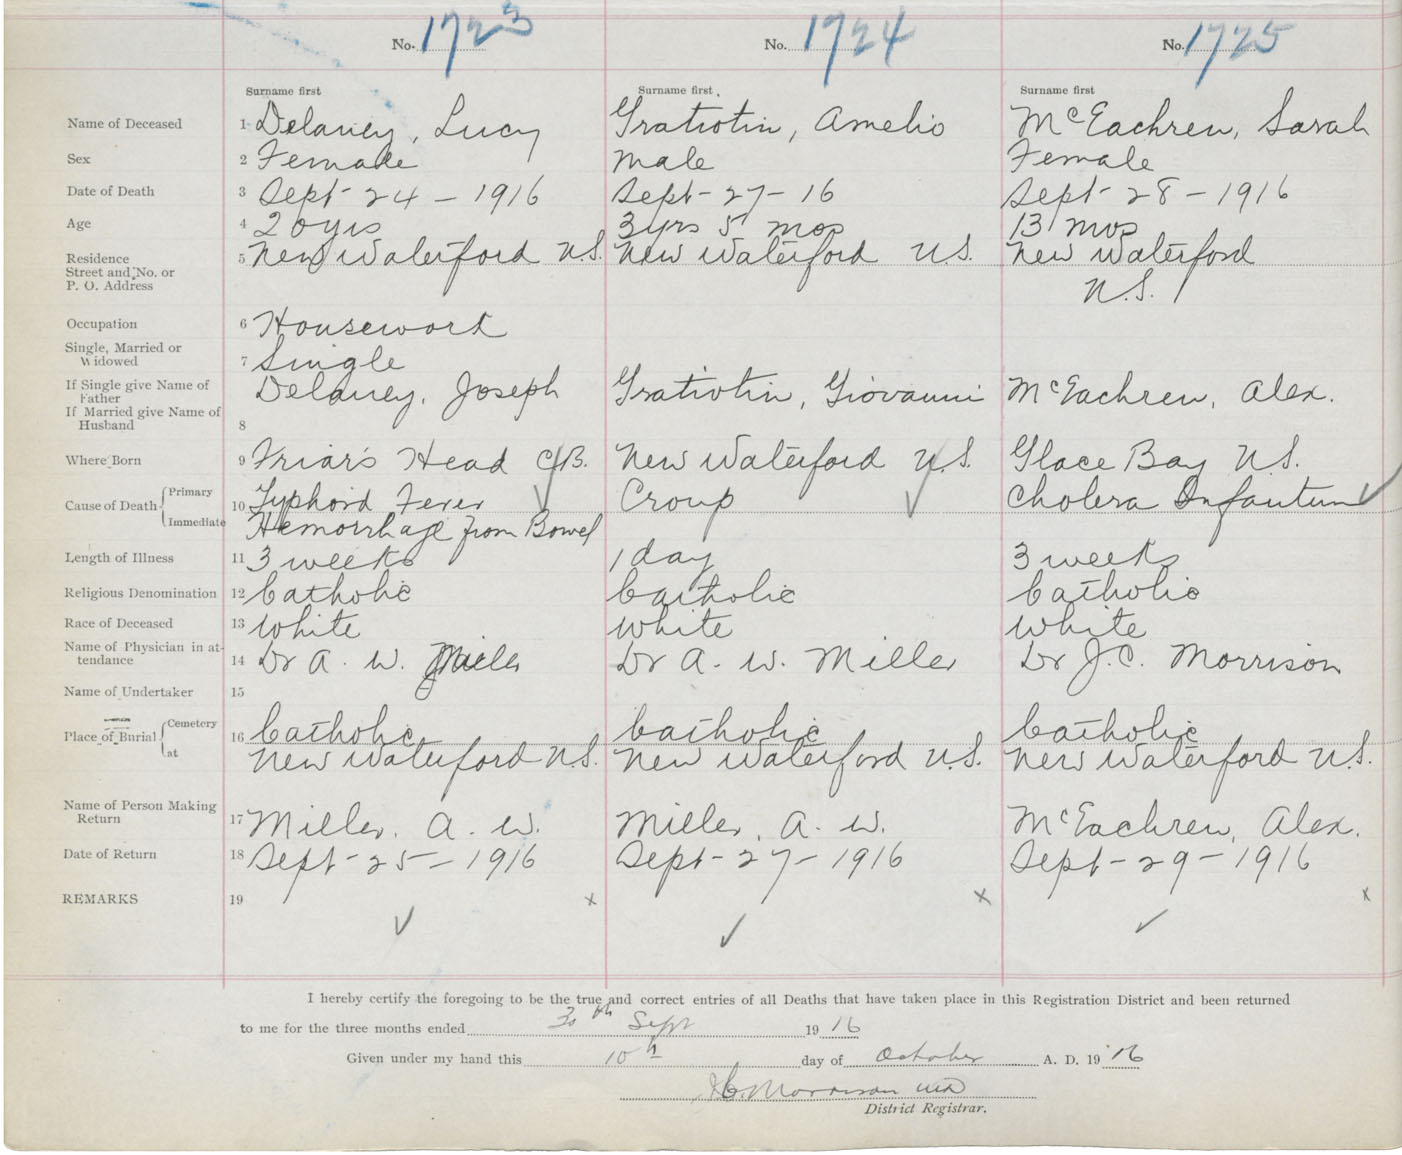 No. 1723 No. 1724 No. 1725
Surname first Surname first Surname first
Name of Deceased 1 Delaney, Lucy Gratiotin, Amelio McEachren, Sarah
Sex 2 Female Male Female
Date of Death 3 Sept - 24 - 1916 Sept - 27 - 16 Sept - 28 - 1916
Age 4 20 yrs 3 yrs 5 mos 13 mos
Residence
Street and No. or
P. O. Address 5 New Waterford N.S. New Waterford N.S. New Waterford
N.S.
Occupation 6 Housework
Single, Married or
Widowed 7 Single
If Single give Name of
Father Delaney, Joseph Gratiotin, Giovanni McEachren, Alex.
If Married give Name of
Husband 8
Where Born 9 Friar's Head C.B. New Waterford N.S. Glace Bay N.S.
Cause of Death Primary 10 Typhoid Fever Croup Cholera Infantum
Immediate Hemorrhage from Bowel
Length of Illness 11 3 weeks 1 day 3 weeks
Religious Denomination 12 Catholic Catholic Catholic
Race of Deceased 13 White White White
Name of Physician in at-
tendance 14 Dr A. W. Miller Dr A. W. Miller Dr J. C. Morrison
Name of Undertaker 15
Place of Burial Cemetery 16 Catholic Catholic Catholic
at New Waterford N.S. New Waterford N.S. New Waterford N.S.
Name of Person Making
Return 17 Miller, A. W. Miller, A. W. McEachren, Alex.
Date of Return 18 Sept - 25 - 1916 Sept - 27 - 1916 Sept - 29 - 1916
REMARKS 19 x x x
I hereby certify the foregoing to be the true and correct entries of all Deaths that have taken place in this Registration District and been returned
to me for the three months ended 30th Sept 1916
Given under my hand this 10th day of October A. D. 1916
Morrison MD
District Registrar.